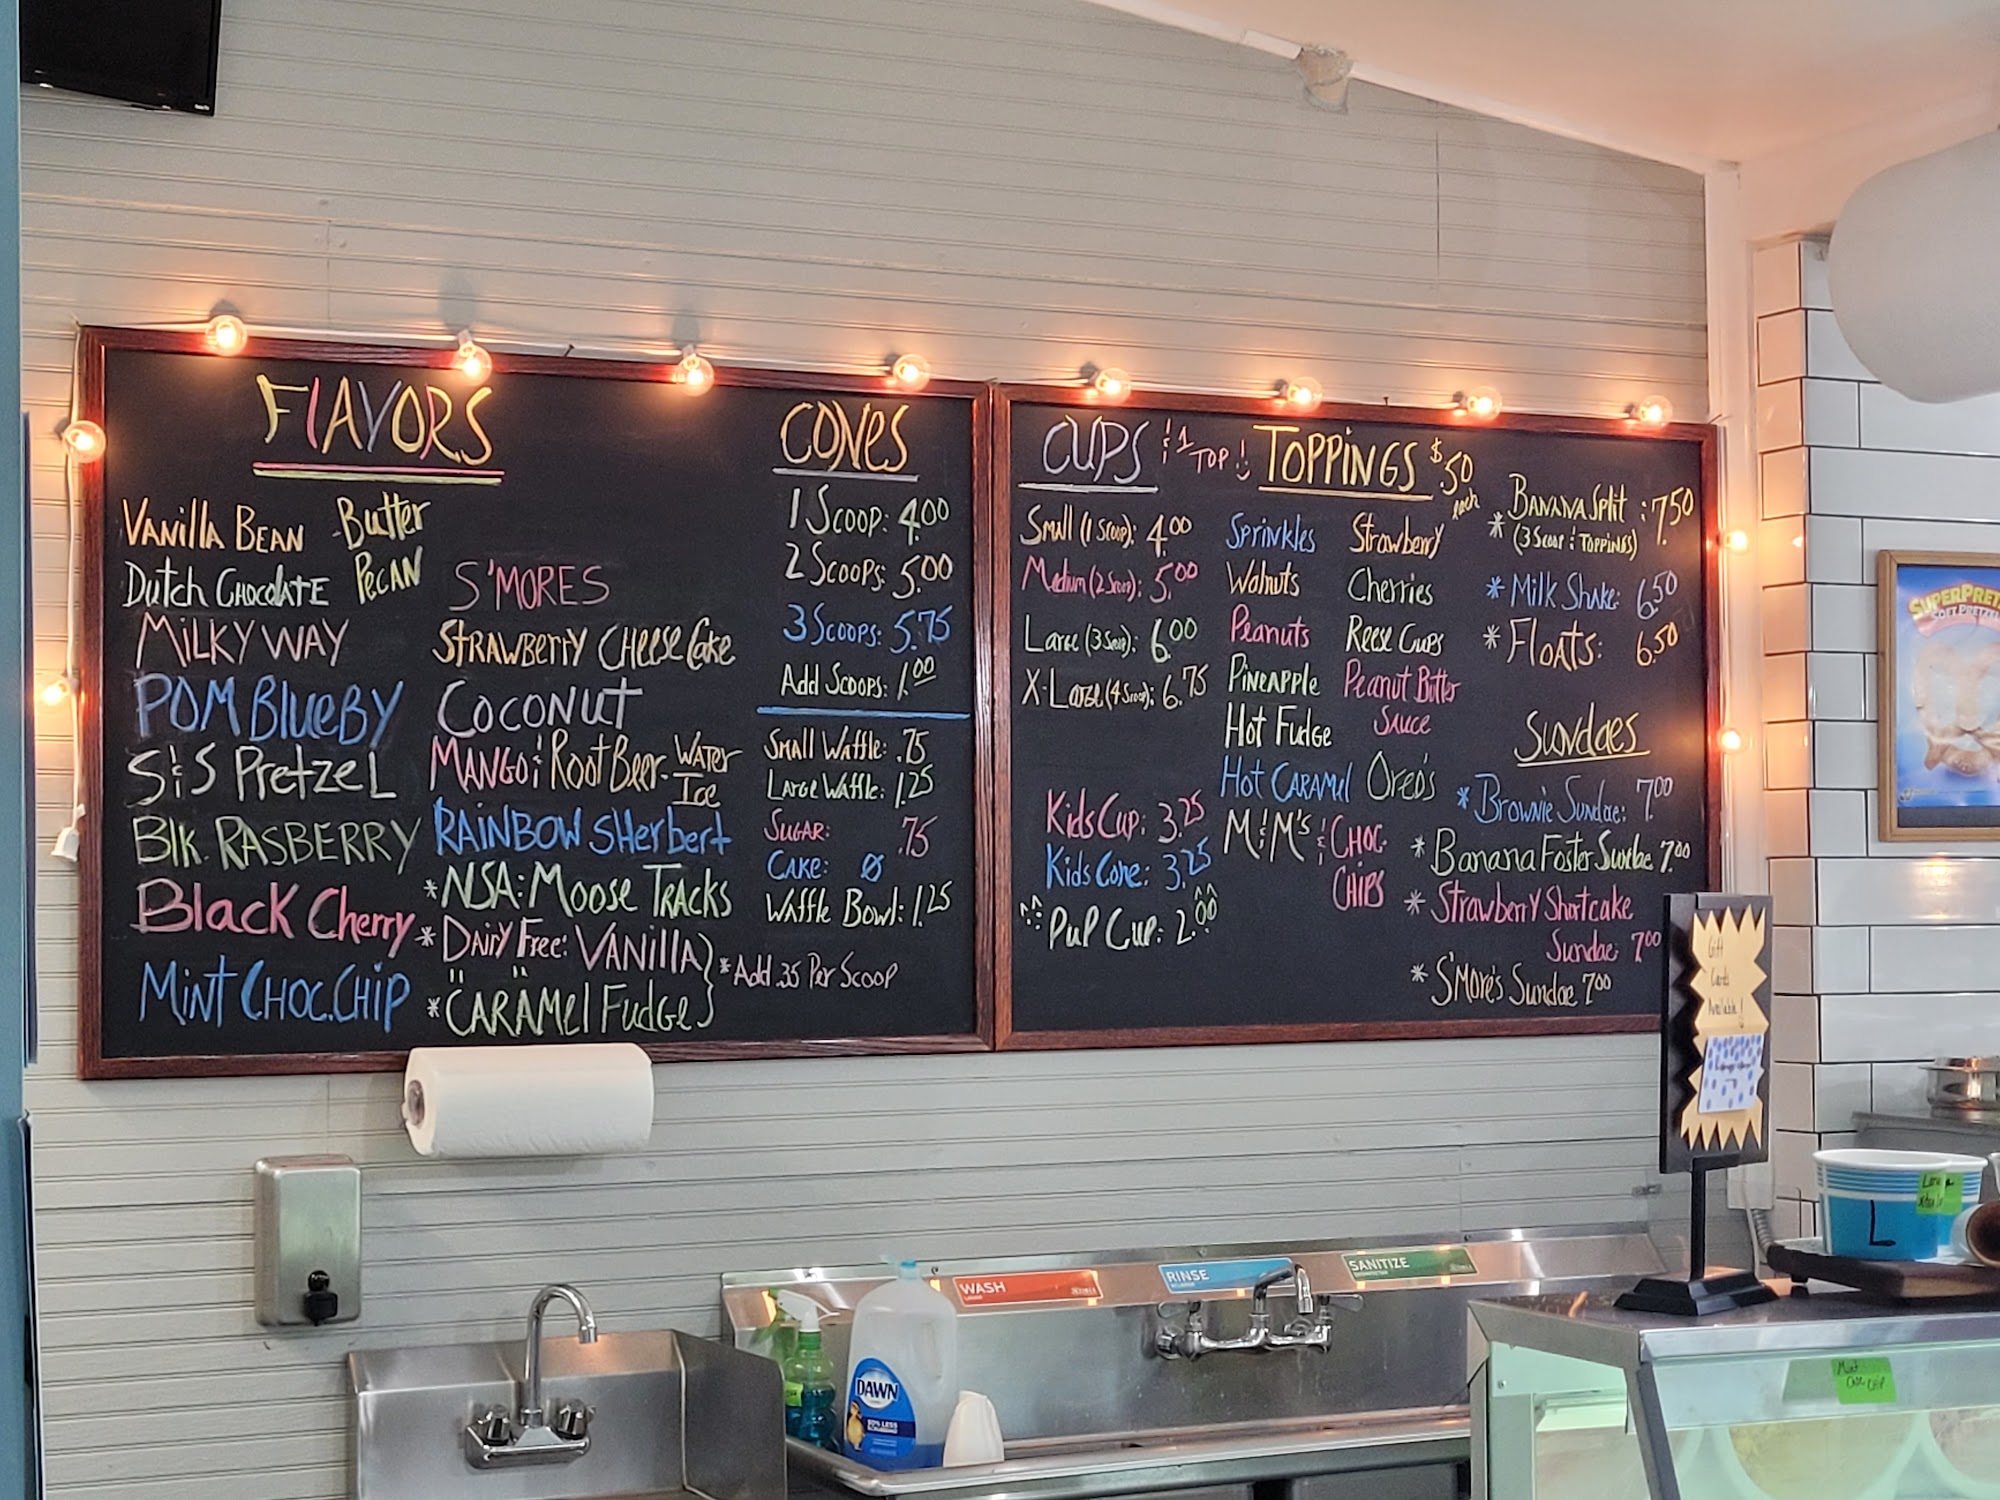 FLAVORS
VANILLA BEAN
Butter
PECAN
Dutch CHOCOLATE
MILKY WAY
POM BlueBY
S&S PretzeL
Blk. RASBERRY
Black Cherry
Mint CHOC.CHIP
S'MORES
STRAWBERRY CHEESE Cake
COCONUT
MANGO & Root Beer - WATER
Ice
RAINBOW SHerbert
*NSA: Moose TRACKS
*DAIRY FREE: VANILLA
*" " CARAMEl Fudge
*Add .35 Per Scoop
CONES
1 Scoop: 4.00
2 Scoops: 5.00
3 Scoops: 5.75
Add Scoops: 1.00
Small Waffle: .75
Large Waffle: 1.25
SUGAR: .75
CAKE: 0
Waffle Bowl: 1.25
CUPS & 1 TOP!
Small (1 Scoop): 4.00
Medium (2 Scoop): 5.00
Large (3 Scoop): 6.00
X-Large (4 Scoop): 6.75
Kids Cup: 3.25
Kids Cone: 3.25
PuP Cup: 2.00
TOPPINGS $.50
each
Sprinkles
Walnuts
Peanuts
PINEAPPLE
Hot Fudge
Hot CARAMEl
M&M's & CHOC.
CHIPS
Strawberry
Cherries
Reese Cups
Peanut Butter
Sauce
Oreo's
* BANANA Split : 7.50
(3 Scoop & TOPPINGS)
* Milk Shake: 6.50
* Floats: 6.50
Sundaes
* Brownie Sundae: 7.00
* Banana Foster Sundae 7.00
* Strawberry Shortcake
Sundae: 7.00
* S'More's Sundae 7.00
Gift
Cards
Available!
SUPERPRET
SOFT PRETZEL
WASH
RINSE
SANITIZE
DAWN
L
Mint
Choc Chip